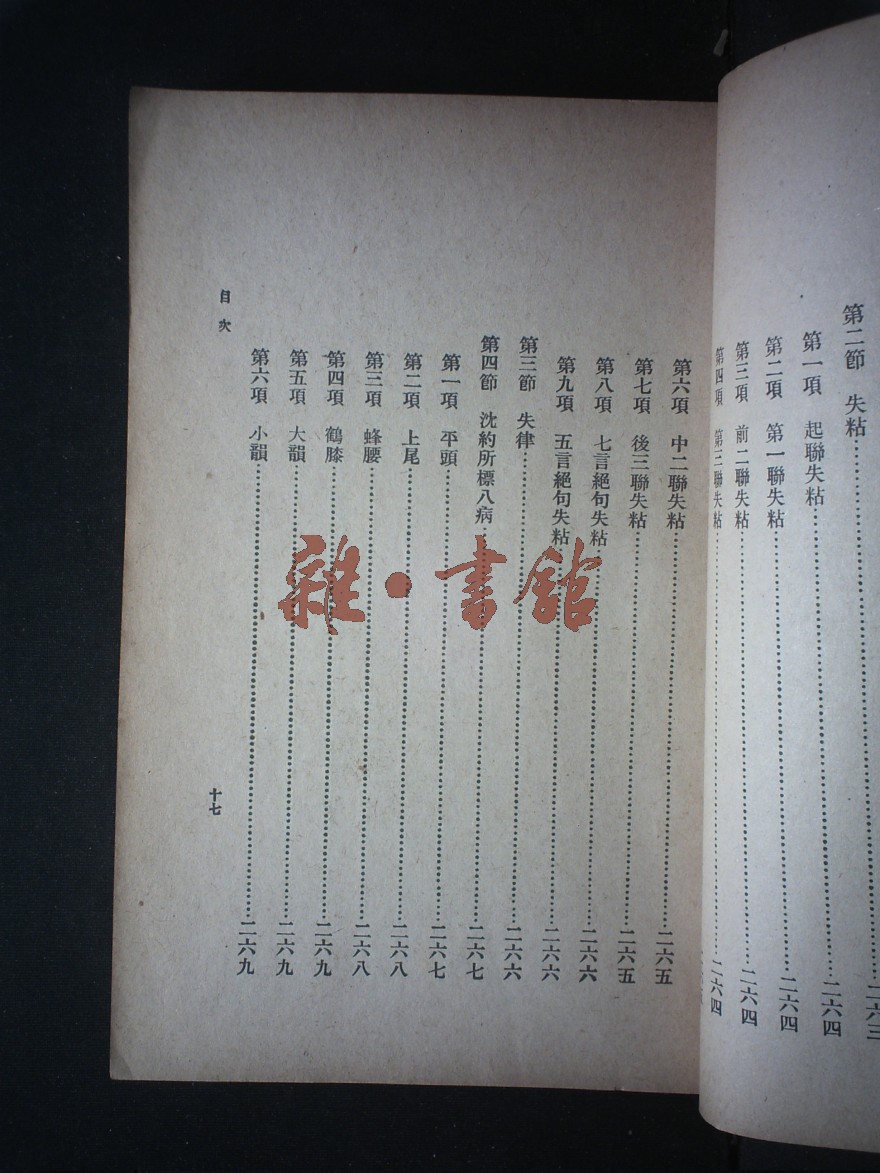 第二節　失粘……二六三
第一項　起聯失粘……二六四
第二項　第一聯失粘……二六四
第三項　前二聯失粘……二六四
第四項　第三聯失粘……二六四
第六項　中二聯失粘……二六五
第七項　後三聯失粘……二六五
第八項　七言絕句失粘……二六六
第九項　五言絕句失粘……二六六
第三節　失律……二六六
第四節　沈約所標八病……二六七
第一項　平頭……二六七
第二項　上尾……二六八
第三項　蜂腰……二六八
第四項　鶴膝……二六九
第五項　大韻……二六九
第六項　小韻……二六九
目次
十七
雜·書館